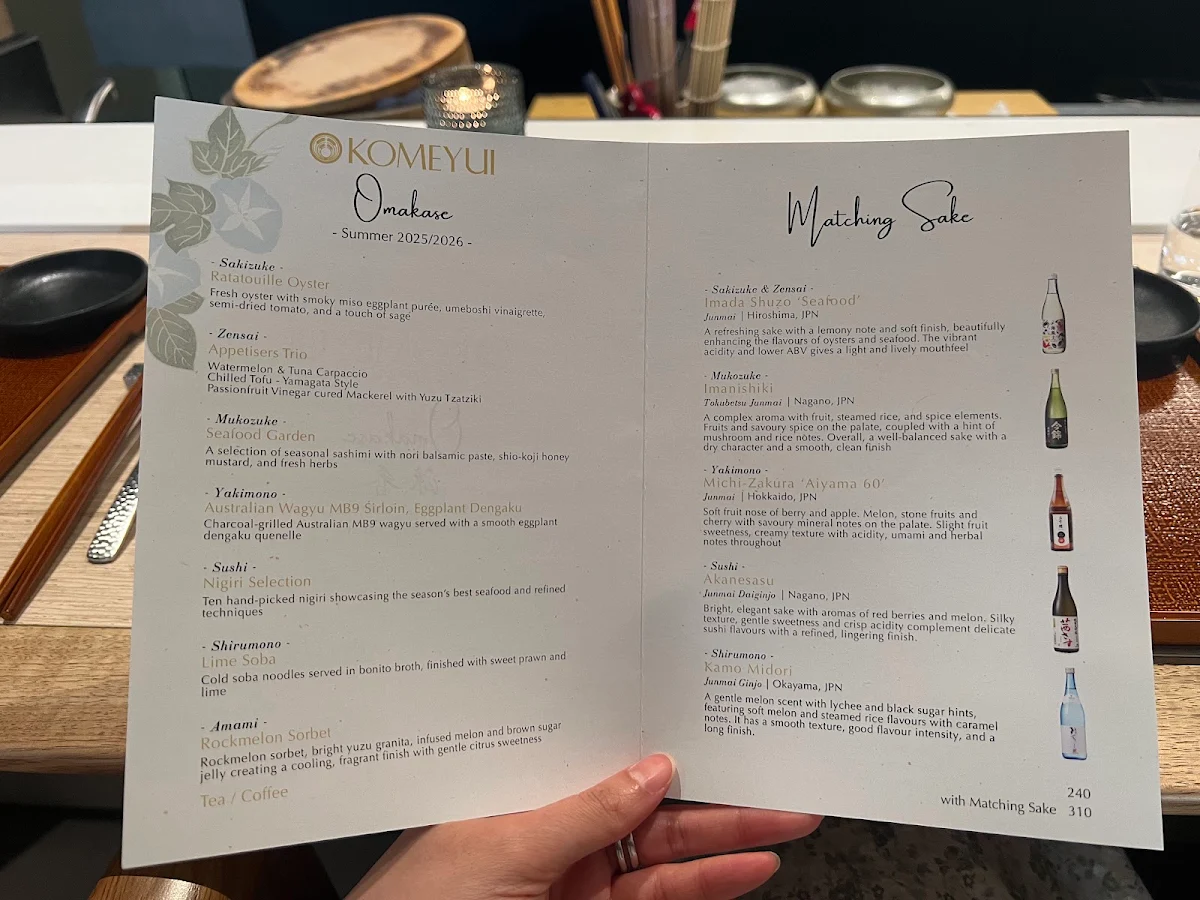 KOMEYUI
Omakase
- Summer 2025/2026 -
- Sakizuke -
Ratatouille Oyster
Fresh oyster with smoky miso eggplant purée, umeboshi vinaigrette,
semi-dried tomato, and a touch of sage
- Zensai -
Appetisers Trio
Watermelon & Tuna Carpaccio
Chilled Tofu - Yamagata Style
Passionfruit Vinegar cured Mackerel with Yuzu Tzatziki
- Mukozuke -
Seafood Garden
A selection of seasonal sashimi with nori balsamic paste, shio-koji honey
mustard, and fresh herbs
- Yakimono -
Australian Wagyu MB9 Sirloin, Eggplant Dengaku
Charcoal-grilled Australian MB9 wagyu served with a smooth eggplant
dengaku quenelle
- Sushi -
Nigiri Selection
Ten hand-picked nigiri showcasing the season's best seafood and refined
techniques
- Shirumono -
Lime Soba
Cold soba noodles served in bonito broth, finished with sweet prawn and
lime
- Amami -
Rockmelon Sorbet
Rockmelon sorbet, bright yuzu granita, infused melon and brown sugar
jelly creating a cooling, fragrant finish with gentle citrus sweetness
Tea / Coffee
Matching Sake
- Sakizuke & Zensai -
Imada Shuzo 'Seafood'
Junmai | Hiroshima, JPN
A refreshing sake with a lemony note and soft finish, beautifully
enhancing the flavours of oysters and seafood. The vibrant
acidity and lower ABV gives a light and lively mouthfeel
- Mukozuke -
Imanishiki
Tokubetsu Junmai | Nagano, JPN
A complex aroma with fruit, steamed rice, and spice elements.
Fruits and savoury spice on the palate, coupled with a hint of
mushroom and rice notes. Overall, a well-balanced sake with a
dry character and a smooth, clean finish
- Yakimono -
Michi-Zakura 'Aiyama 60'
Junmai | Hokkaido, JPN
Soft fruit nose of berry and apple. Melon, stone fruits and
cherry with savoury mineral notes on the palate. Slight fruit
sweetness, creamy texture with acidity, umami and herbal
notes throughout
- Sushi -
Akanesasu
Junmai Daiginjo | Nagano, JPN
Bright, elegant sake with aromas of red berries and melon. Silky
texture, gentle sweetness and crisp acidity complement delicate
sushi flavours with a refined, lingering finish.
- Shirumono -
Kamo Midori
Junmai Ginjo | Okayama, JPN
A gentle melon scent with lychee and black sugar hints,
featuring soft melon and steamed rice flavours with caramel
notes. It has a smooth texture, good flavour intensity, and a
long finish.
240
with Matching Sake 310